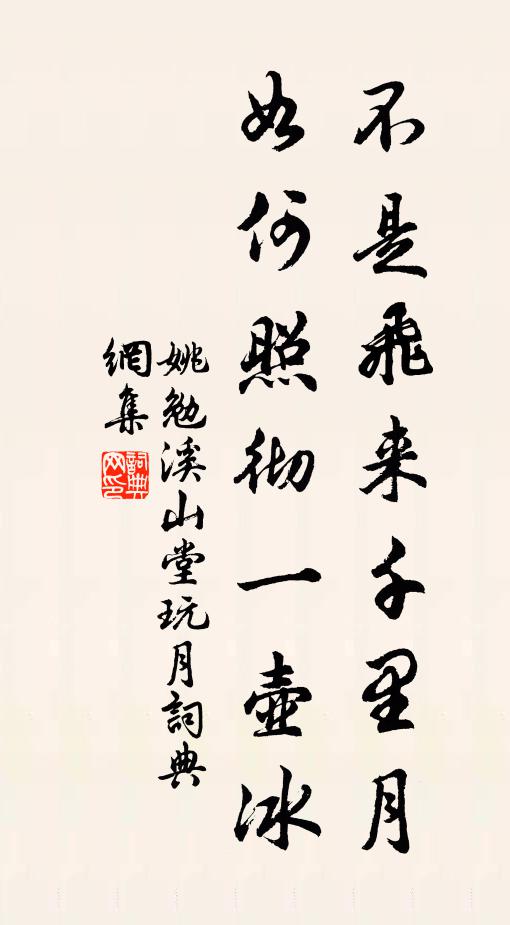 不是飛来千里月
如何照彻一壺冰
姚勉溪山堂玩月詞典
網集
詞典网印